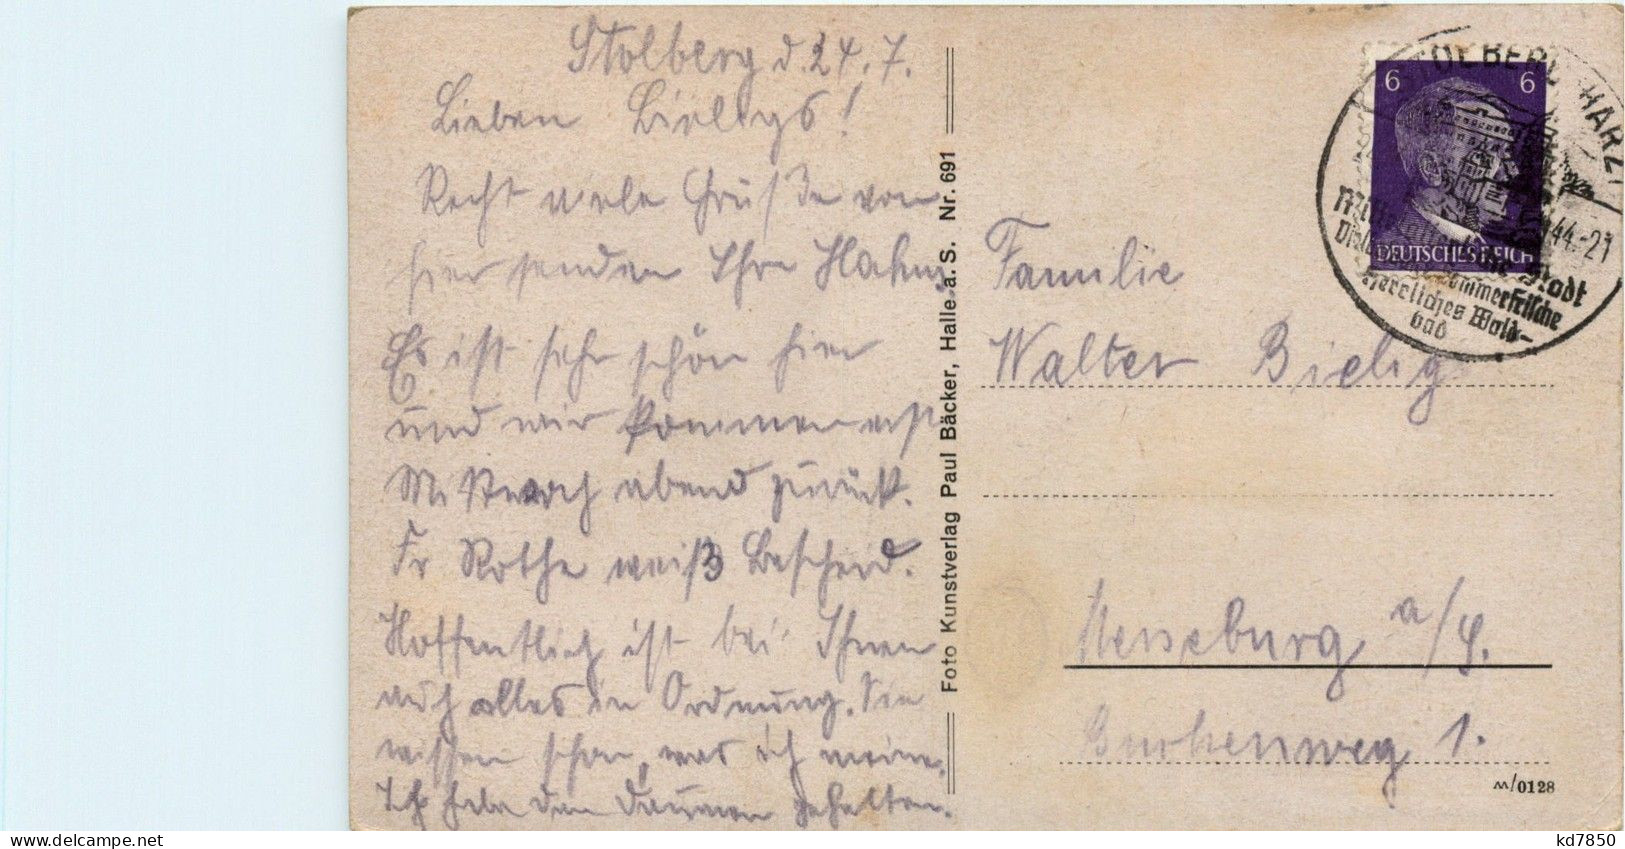 Stolberg d. 24. 7.
Lieben Bieligs!
Recht viele Grüße von
hier senden Ihre Hahns.
Es ist sehr schön hier
und wir kommen erst
Mittwoch abend zurück.
Fr Rothe weiß Bescheid.
Hoffentlich ist bei Ihnen
auch alles in Ordnung. Sie
wissen schon, was ich meine.
Ich habe den Daumen gehalten.
Foto Kunstverlag Paul Bäcker, Halle a. S. Nr. 691
6 6
DEUTSCHES REICH
STOLBERG HARZ
44.-21
Stadt
Sommerfrische
Herrliches Wald-
bad
Familie
Walter Bielig
Merseburg a/S.
Buchenweg 1.
M/0128
kd7850